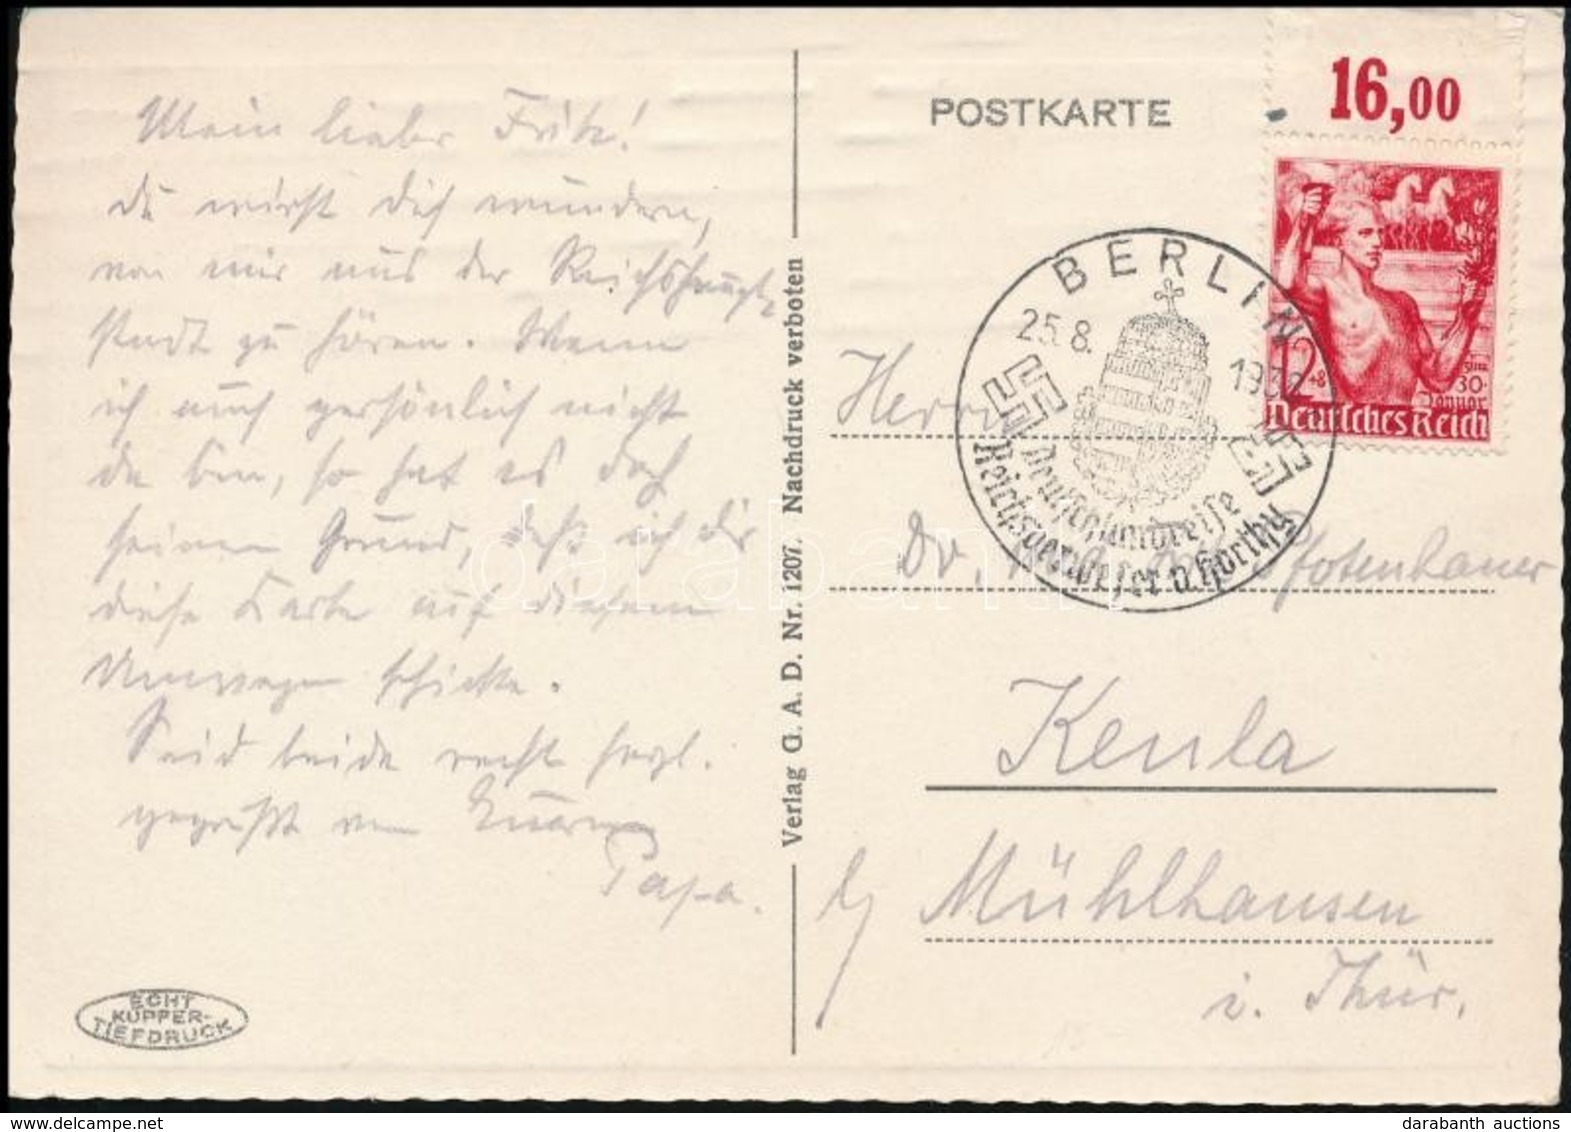 Mein lieber Fritz!
Du wirst Dich wundern,
von mir aus der Reichshaupt-
stadt zu hören. Wenn
ich auch persönlich nicht
da bin, so hat es doch
seinen Grund, daß ich Dir
diese Karte auf diesem
Umwege schicke.
Seid beide recht herzl.
gegrüßt von Eurem
Papa.
ECHT
KUPFER-
TIEFDRUCK
Verlag G. A. D. Nr. 1207. Nachdruck verboten
POSTKARTE
16,00
12+8
30.
Januar
Deutsches Reich
BERLIN
25.8.
Deutschlandreise
Reichsverweser v. Horthy
Herrn
Dr. Pfotenhauer
Keula
b/ Mühlhausen
i. Thür.
darabanth
darabanth auctions